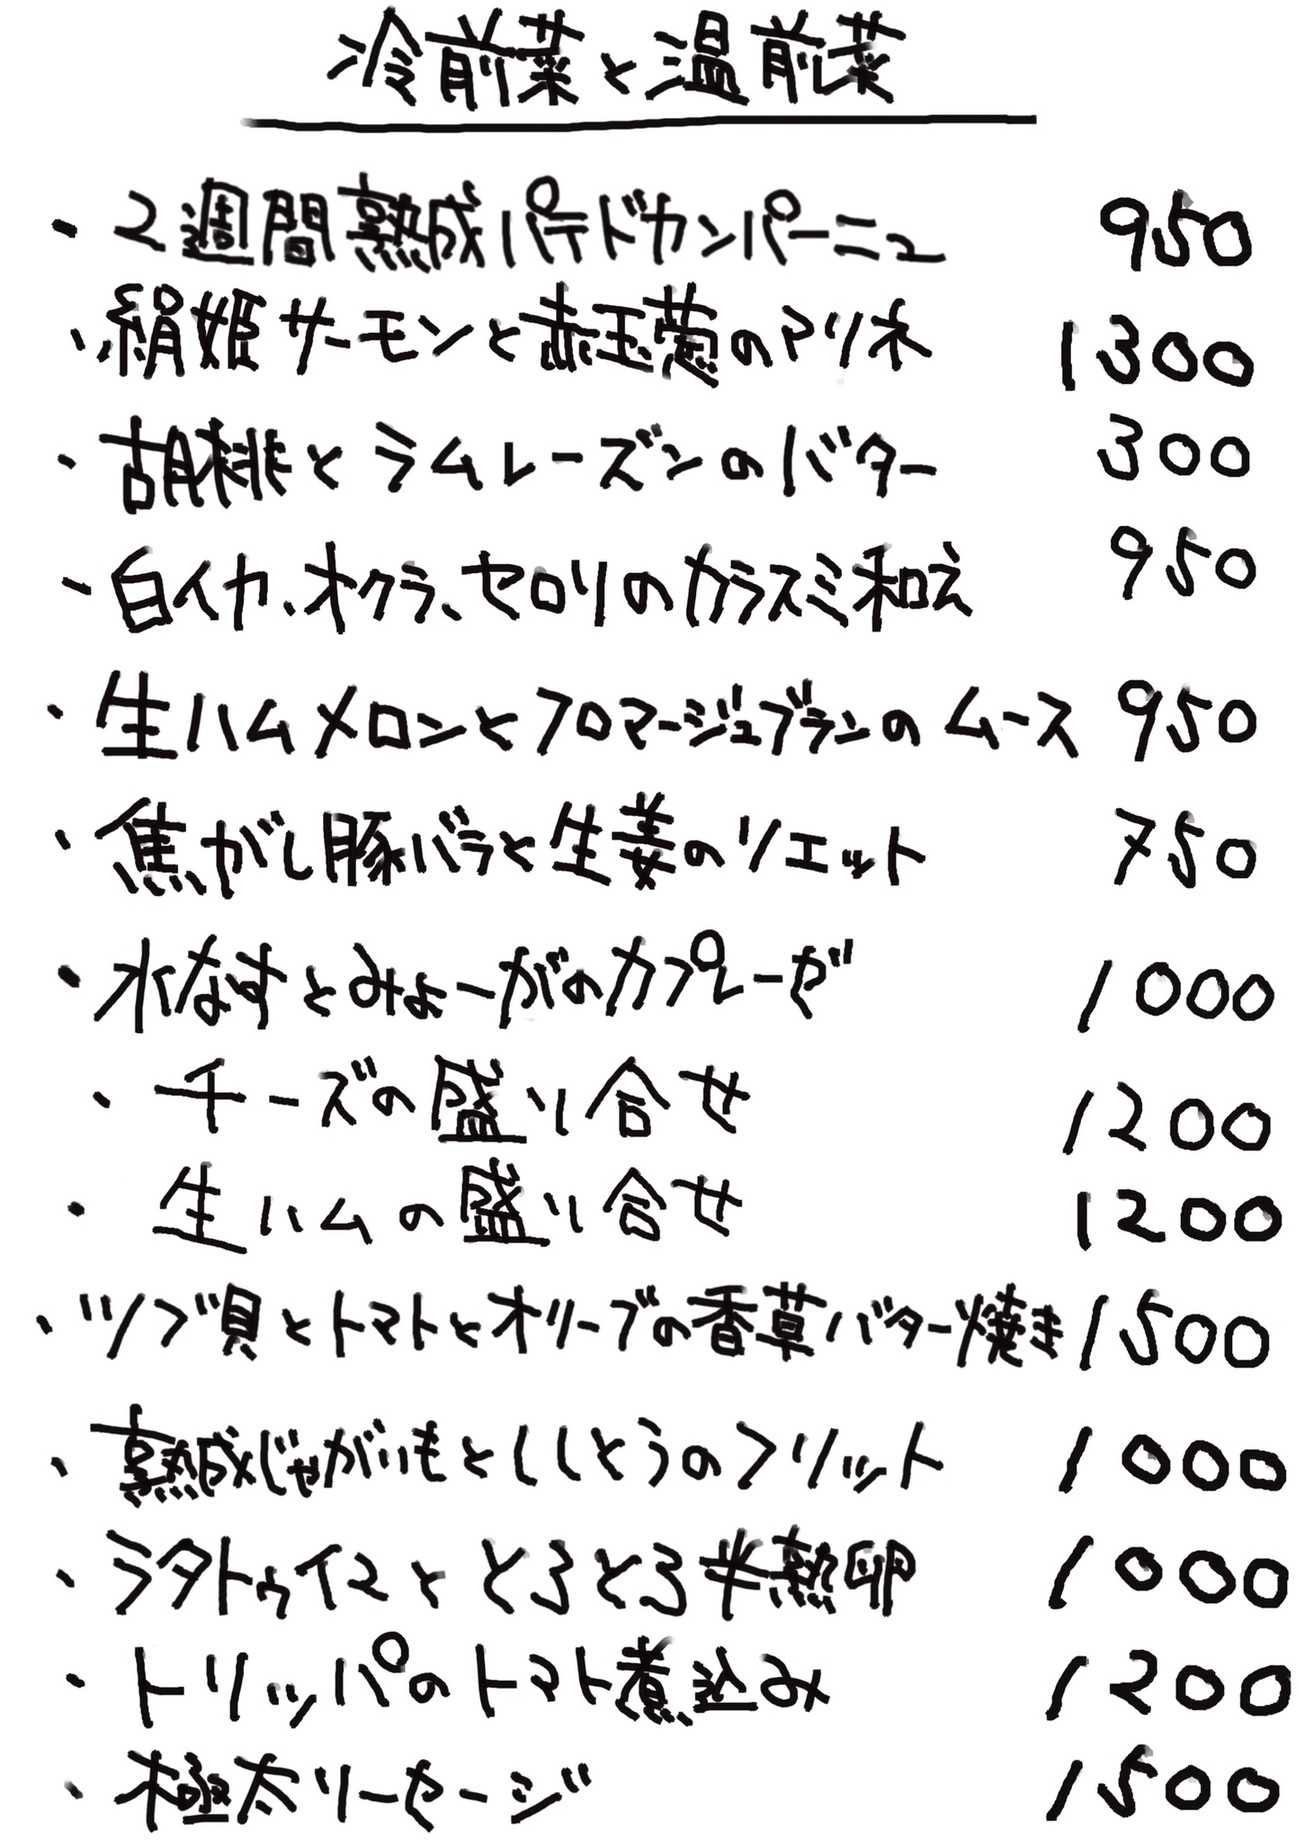 冷前菜と温前菜
・2週間熟成パテドカンパーニュ 950
・絹姫サーモンと赤玉葱のマリネ 1300
・胡桃とラムレーズンのバター 300
・白イカ、オクラ、セロリのカラスミ和え 950
・生ハムメロンとフロマージュブランのムース 950
・焦がし豚バラと生姜のリエット 750
・水なすとみょーがのカプレーゼ 1000
・チーズの盛り合せ 1200
・生ハムの盛り合せ 1200
・ツブ貝とトマトとオリーブの香草バター焼き 1500
・熟成じゃがいもとししとうのフリット 1000
・ラタトゥイユととろとろ半熟卵 1000
・トリッパのトマト煮込み 1200
・極太ソーセージ 1500